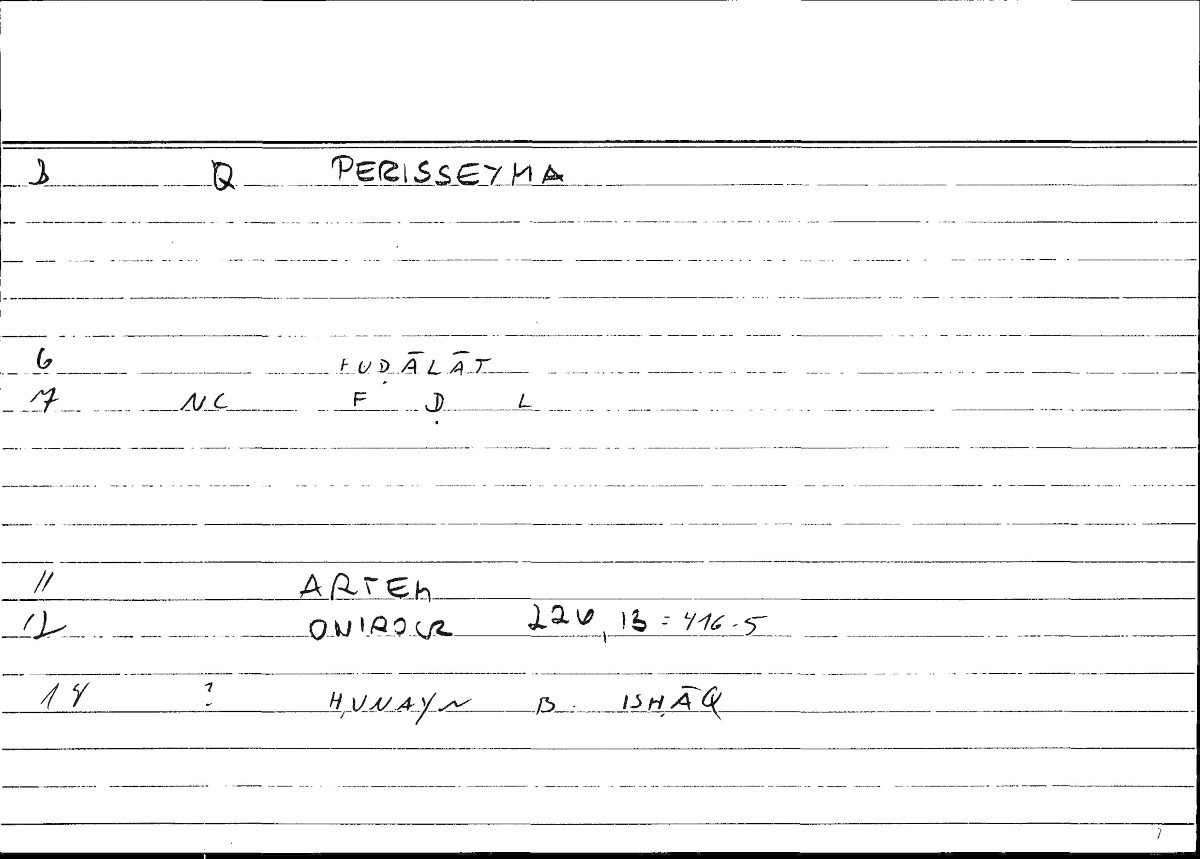 Q PERISSEYMA
6 FUḌĀLĀT
7 NC F Ḍ L
11 ARTEM
12 ONIROCR 226, 13 = 416.5
18 ? ḤUNAYN B. ISḤĀQ